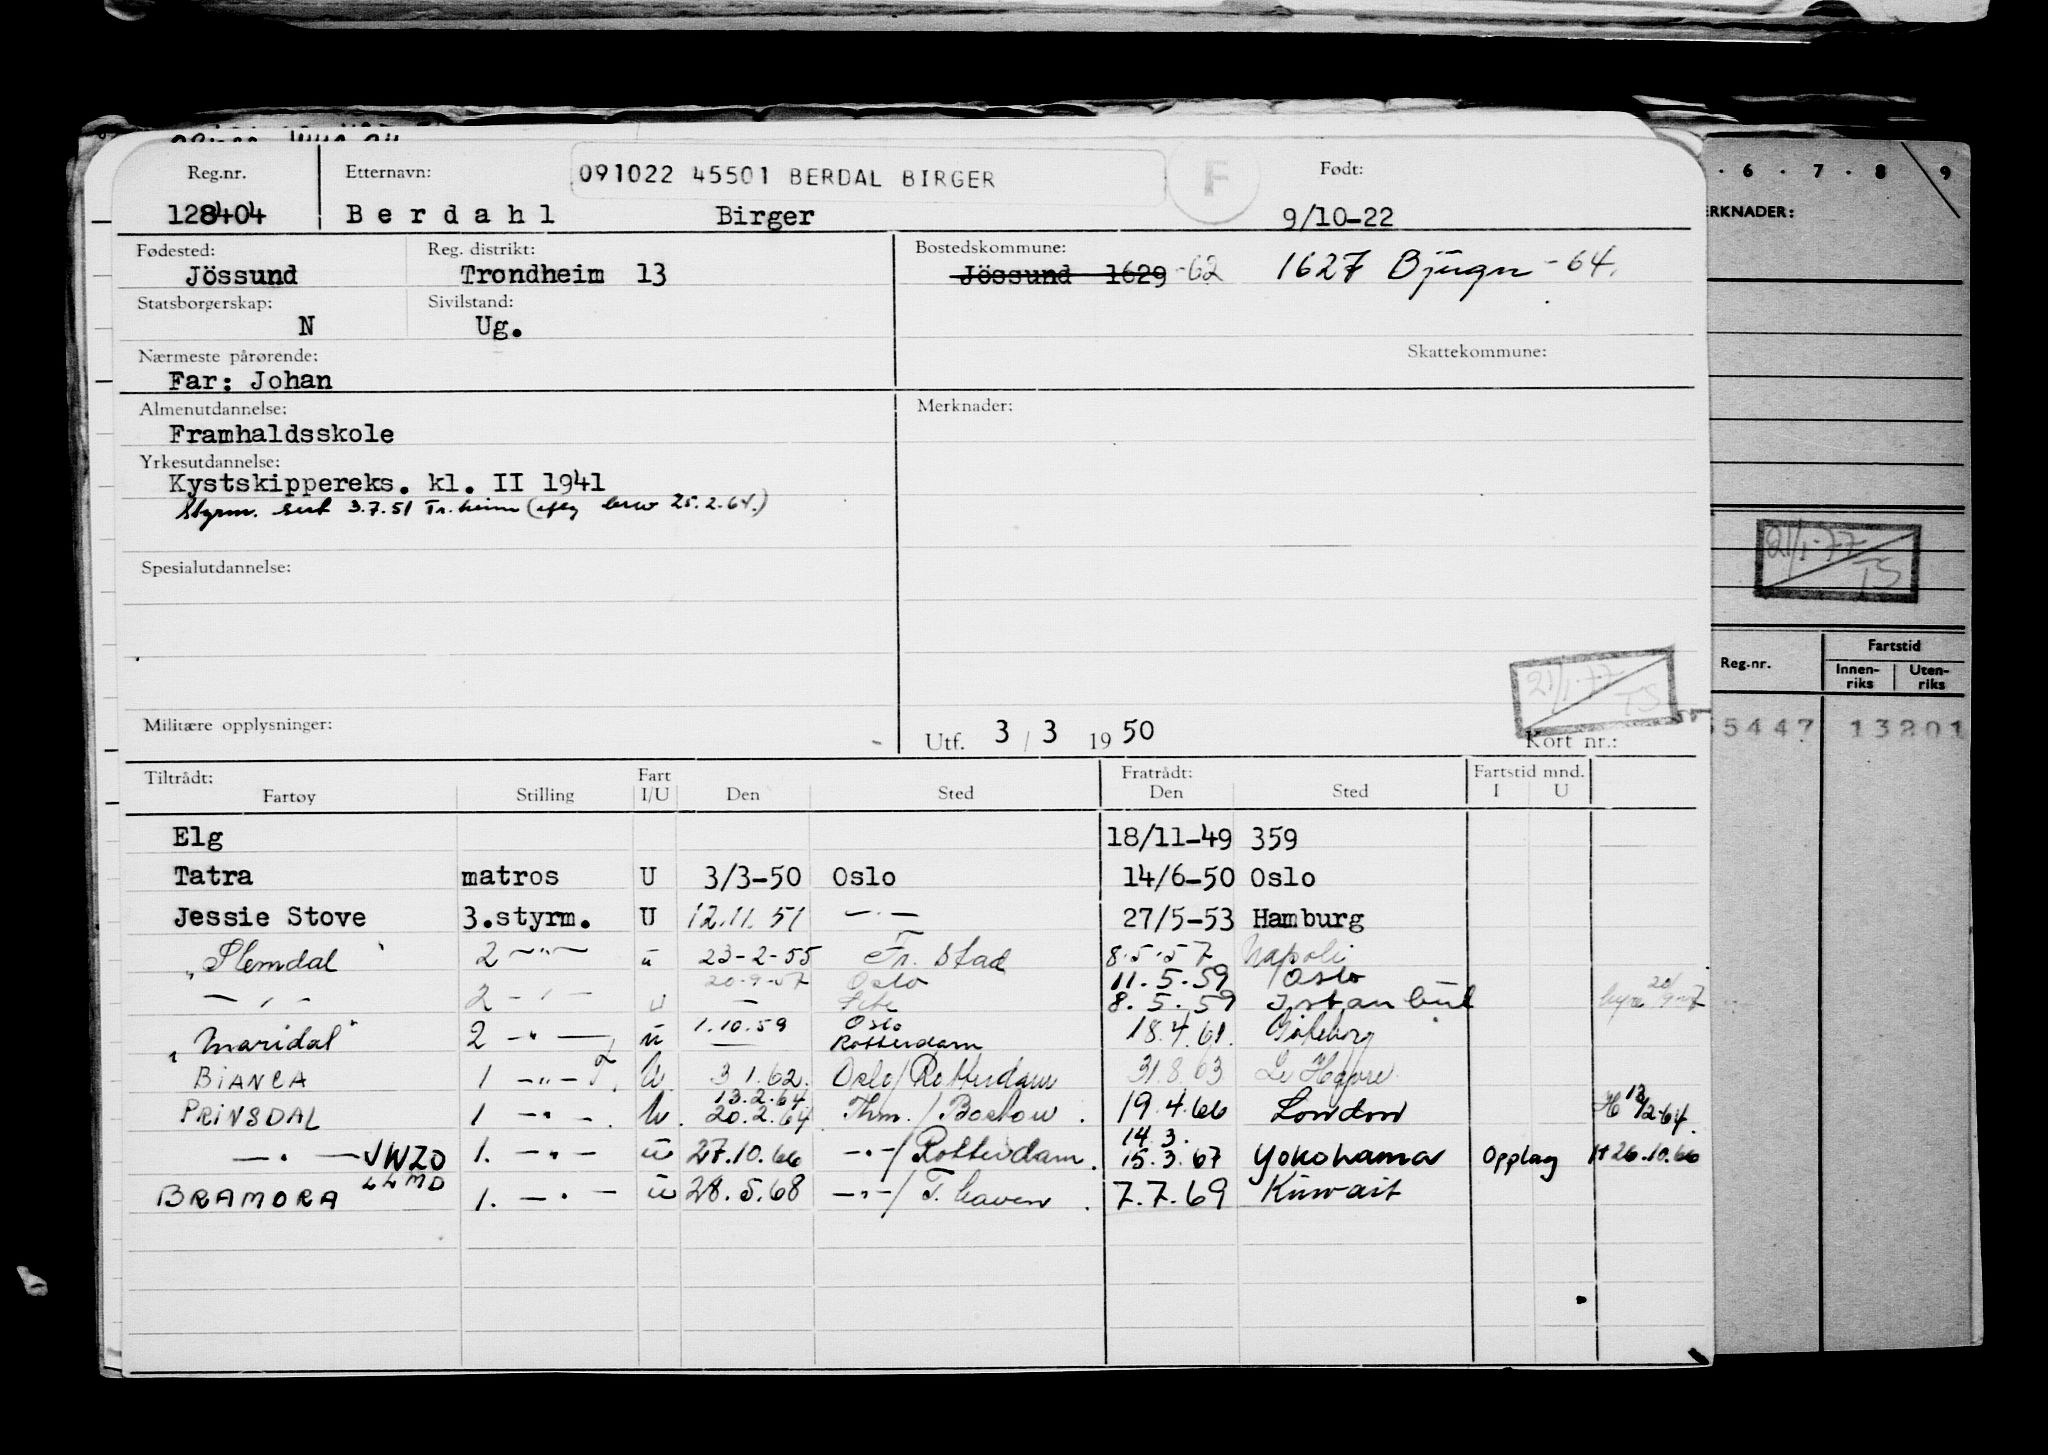 Reg.nr. Etternavn: 091022 45501 BERDAL BIRGER F Født:
128404 Berdahl Birger 9/10-22
Fødested: Reg. distrikt: Bostedskommune:
Jössund Trondheim 13 Jössund 1629 -62 1627 Bjugn -64.
Statsborgerskap: Sivilstand:
N Ug.
Nærmeste pårørende: Skattekommune:
Far: Johan
Almenutdannelse: Merknader:
Framhaldsskole
Yrkesutdannelse:
Kystskippereks. kl. II 1941
Styrm. sert 3.7.51 Tr.heim 25.2.64.)
Spesialutdannelse:
21/1-77 TS
Militære opplysninger: Utf. 3/3 1950 Kort nr.:
Tiltrådt: Fart Fratrådt: Fartstid mnd.
Fartøy Stilling I/U Den Sted Den Sted I U
Elg 18/11-49 359
Tatra matros U 3/3-50 Oslo 14/6-50 Oslo
Jessie Stove 3.styrm. U 12.11.51 -"- 27/5-53 Hamburg
"Slemdal" 2 -"- u 23-2-55 Fr. stad 8.5.57 Napoli
20.9.57 Oslo 11.5.59 Oslo
-"- 2 -"- u 8.5.59 Istanbul
1.10.59 Oslo
"Maridal" 2 -"- u Rotterdam 18.4.61. Göteborg
BIANCA 1 -"- U. 3 1.62. Oslo/Rotterdam 31.8.63 Le Havre.
13.2.64
PRINSDAL 1 -"- U. 20.2.64. Thm./Boston. 19.4.66 London H 13/2-64.
14.3.
-"- JWZO 1. -"- u 27.10.66 -"-/Rotterdam. 15.3.67 Yokohama Opplag H 26.10.66
LLMD
BRAMORA 1. -"- u 28.5.68 -"-/T. haven. 7.7.69 Kuwait
. 6 . 7 . 8 9
RKNADER:
21/1-77 TS
Reg-nr. Fartstid
Innen-riks Uten-riks
55447 13201